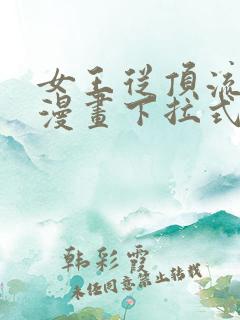 女王从頂流
漫畫下拉式
韩彩霞
未经同意禁止转载